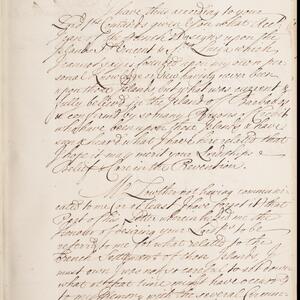 I have this according to your
Lord.ps Com̃ands given You what Acc.t
I can of the French Designs upon the
Islands S.t Vincent & S.t Lucia which
I cannot say is founded upon my own per
sonal Knowledge as I have having never been
upon those Islands but what was current &
fully believed in the Island of Barbados
& confirmed by so many Persons of Credit
who have been upon those Islands & have
seen & heard what I have here related that
I hope it may merit your Lordships
Belief & Care in the Prevention.
M.r Lowther not having communi
cated to me or at least I have forgot it that
Part of the Letter wherein he did me the
Honour of desiring your Lords.ps to be
referred to me for what related to the
French Settlement of those Islands I
must own I was not so careful to set down
what at that time might have occurred
to my Memory with the several Circum